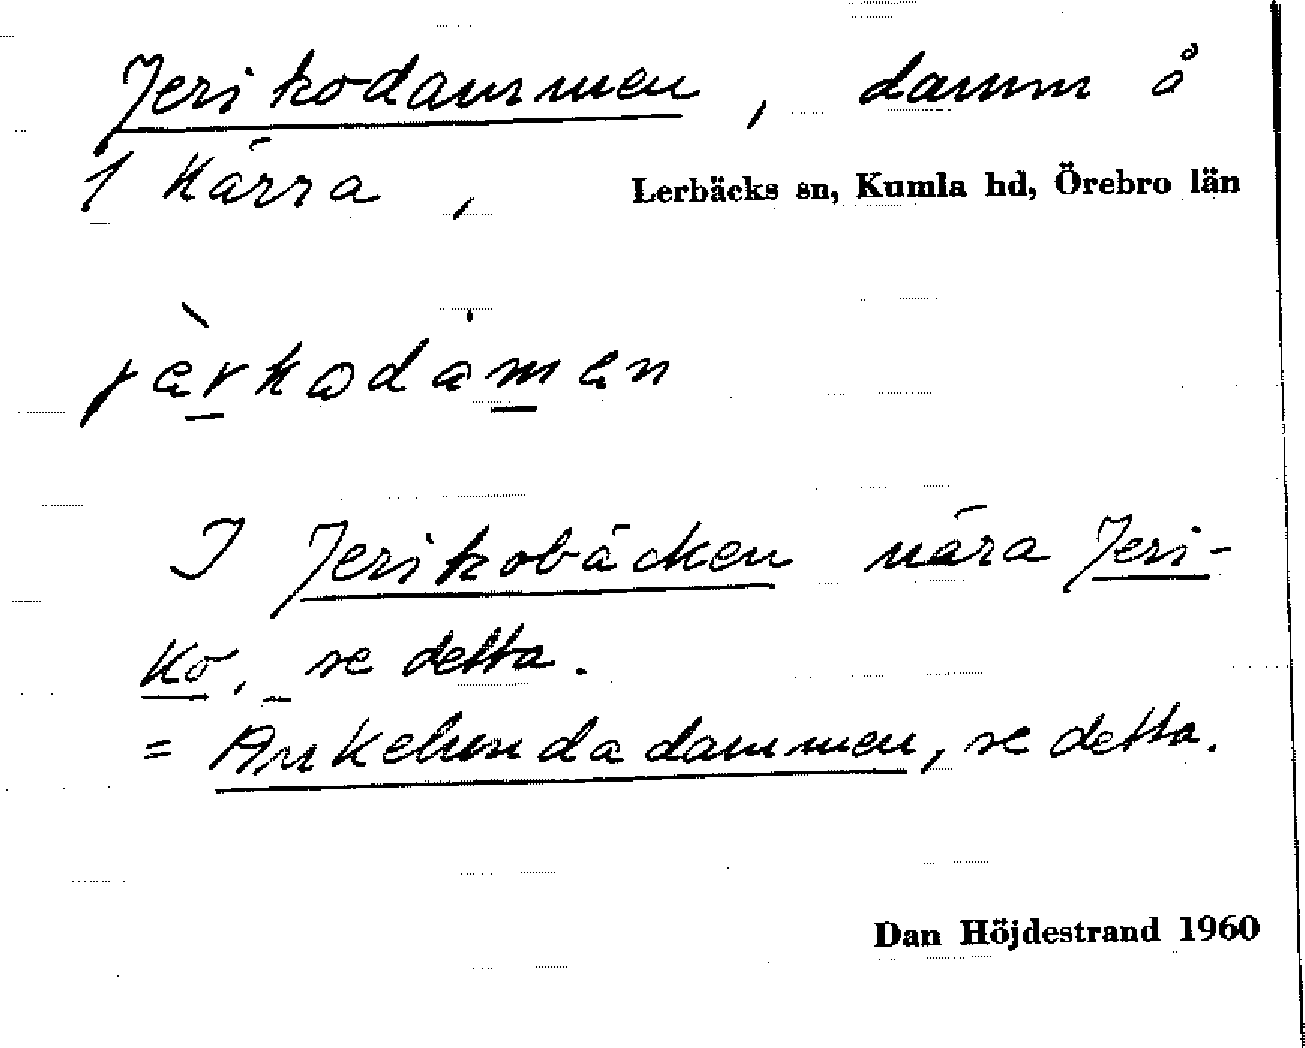 Jerikodammen, damm å
1 Kärra, Lerbäcks sn, Kumla hd, Örebro län
jàrkodaman
I Jerikobäcken nära Jeri-
ko, se detta.
= Änkehundadammen, se detta.
Dan Höjdestrand 1960